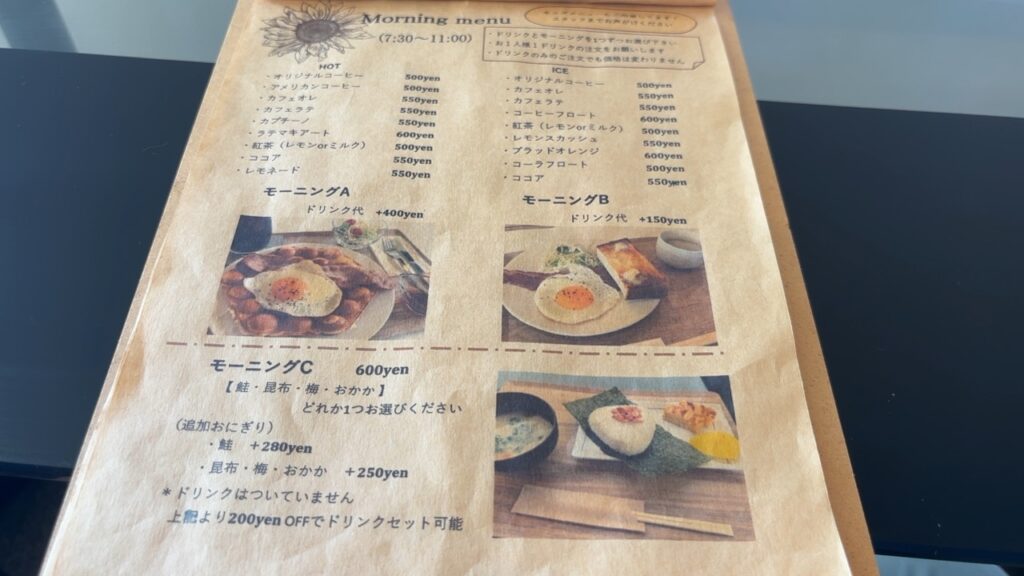 Morning menu
(7:30〜11:00)
スタッフまでお声がけください
・ドリンクとモーニングを1つずつお選び下さい
・お1人様1ドリンクの注文をお願いします
・ドリンクのみのご注文でも価格は変わりません
HOT
・オリジナルコーヒー 500yen
・アメリカンコーヒー 500yen
・カフェオレ 550yen
・カフェラテ 550yen
・カプチーノ 550yen
・ラテマキアート 600yen
・紅茶（レモンorミルク） 500yen
・ココア 550yen
・レモネード 550yen
ICE
・オリジナルコーヒー 500yen
・カフェオレ 550yen
・カフェラテ 550yen
・コーヒーフロート 600yen
・紅茶（レモンorミルク） 500yen
・レモンスカッシュ 550yen
・ブラッドオレンジ 600yen
・コーラフロート 500yen
・ココア 550yen
モーニングA
ドリンク代 +400yen
モーニングB
ドリンク代 +150yen
モーニングC 600yen
【鮭・昆布・梅・おかか】
どれか1つお選びください
（追加おにぎり）
・鮭 +280yen
・昆布・梅・おかか +250yen
＊ドリンクはついていません
上記より200yen OFFでドリンクセット可能